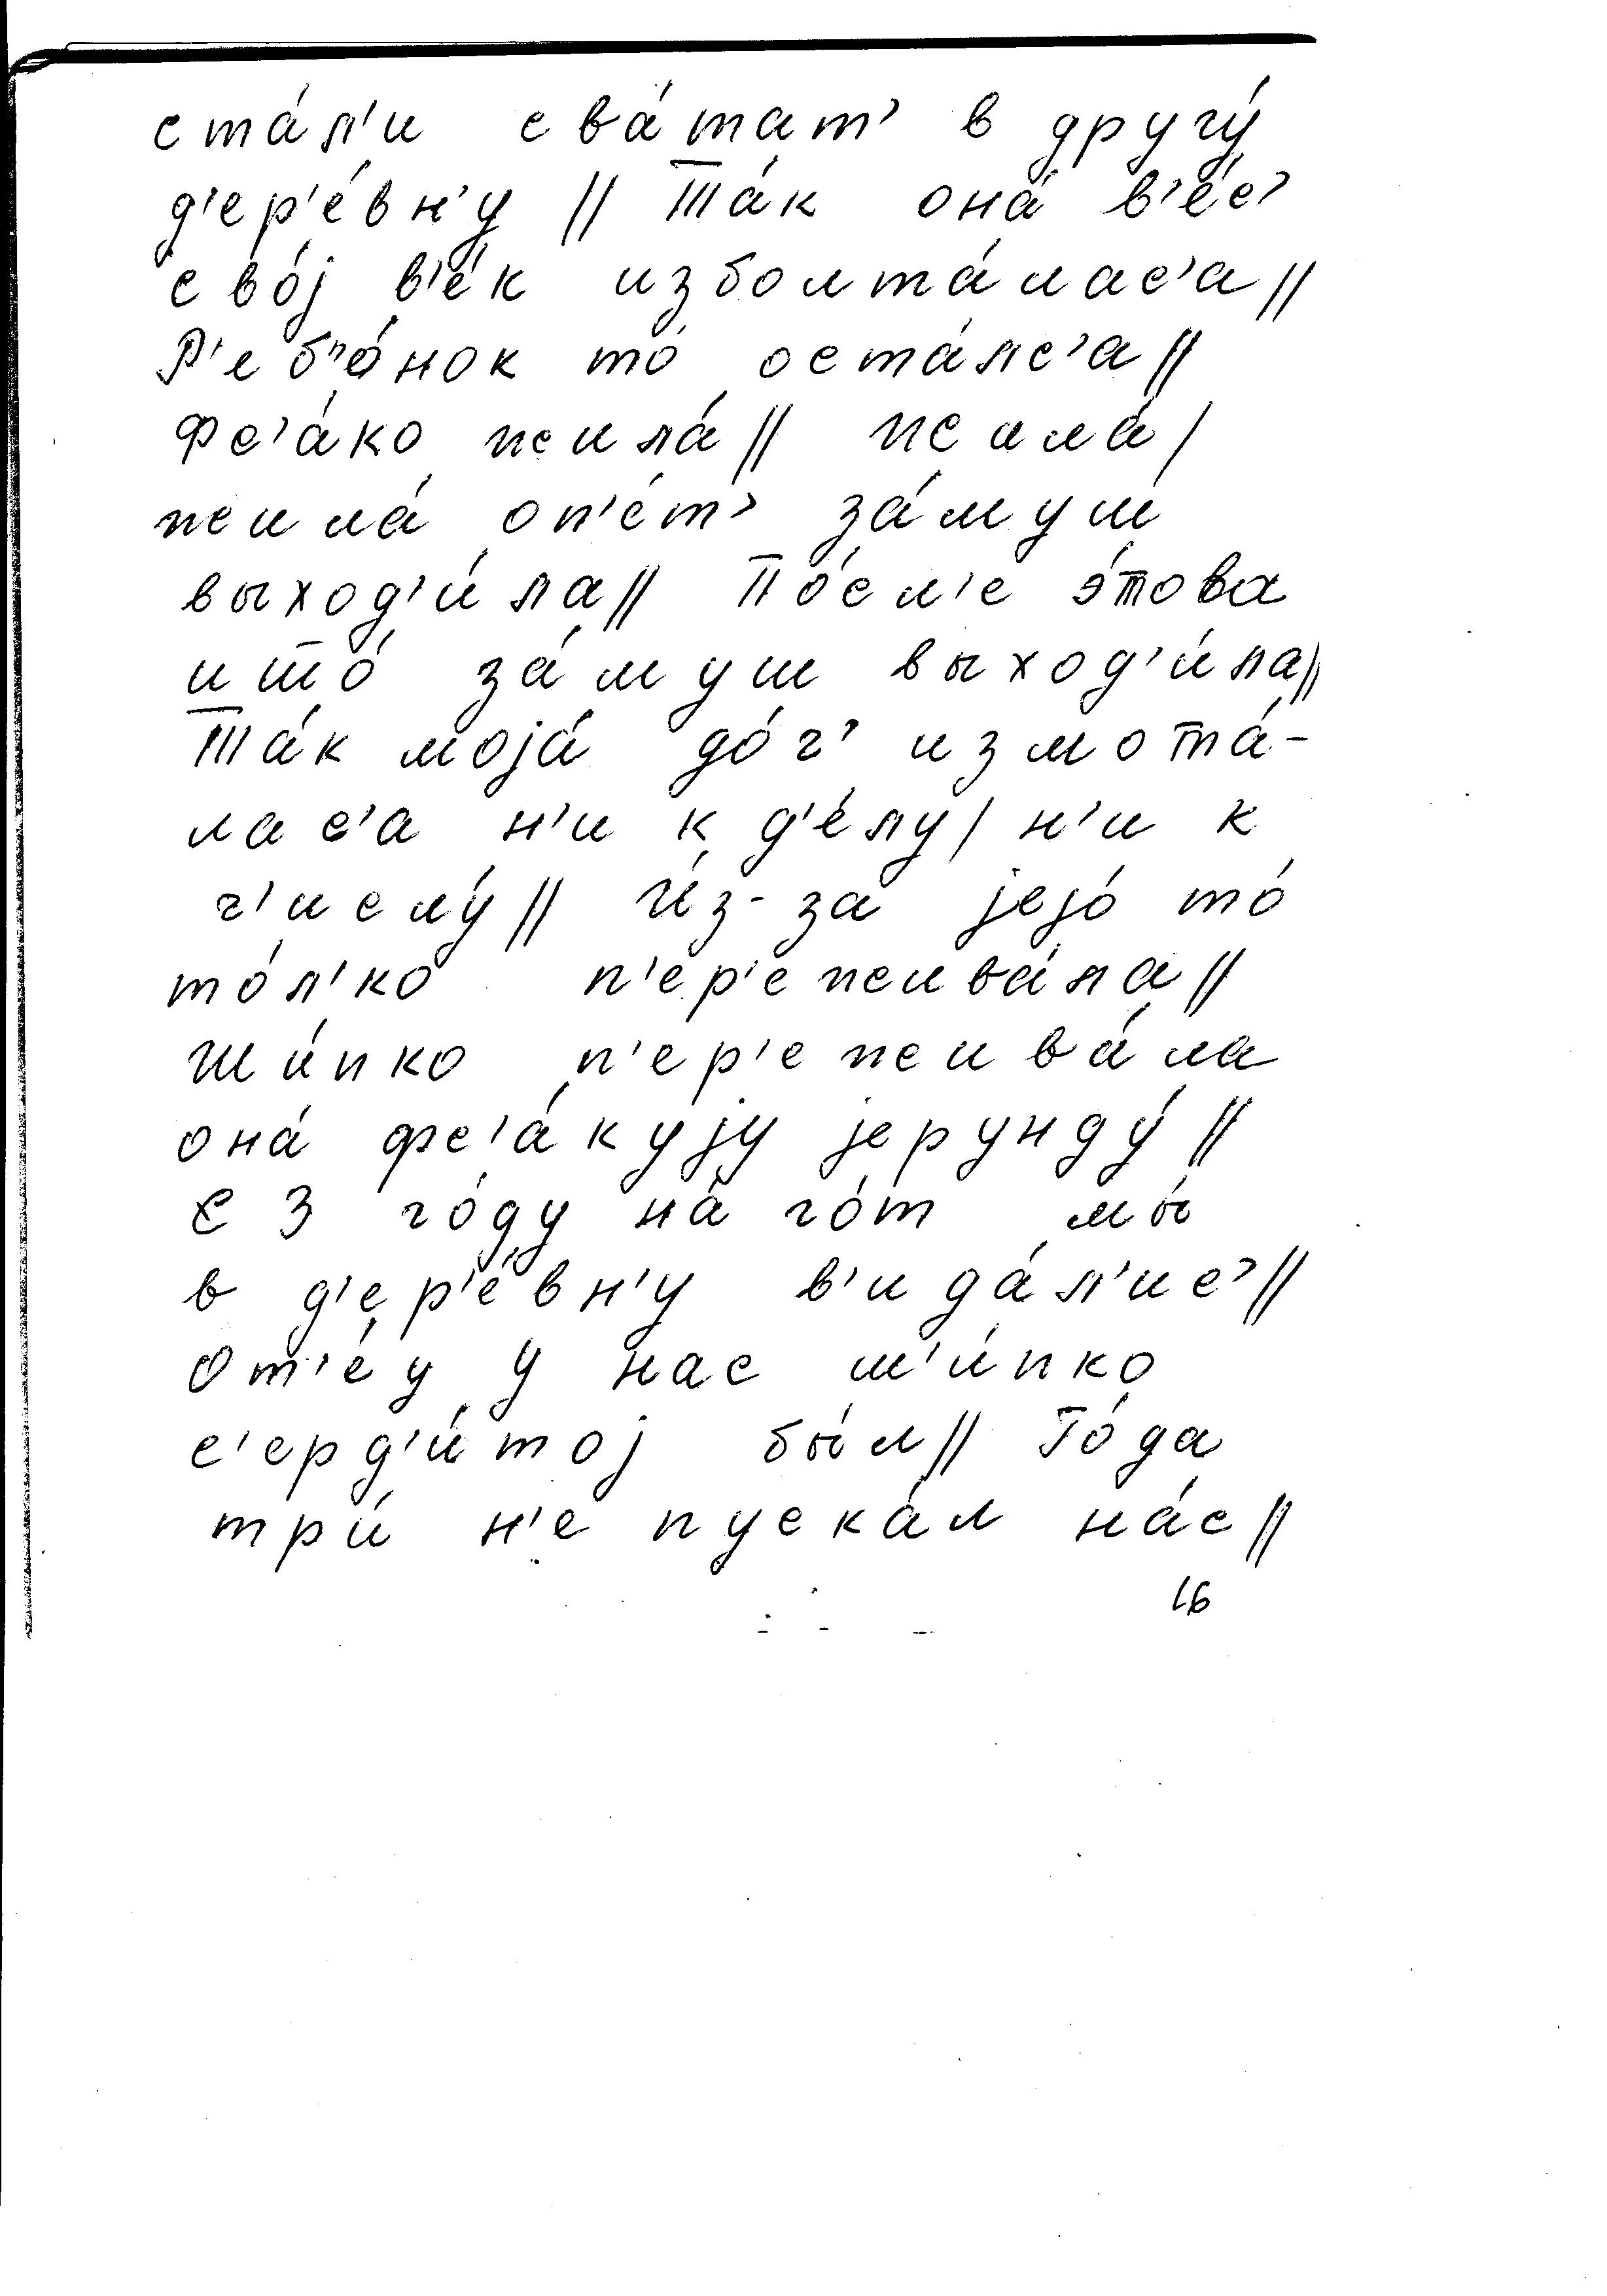 ста́л'и сва́тат' в другу́
д'ер'е́вн'у // Та́к она́ в'е́с'
сво́j в'е́к изболта́лас'а //
Р'еб'о́нок то́ оста́лс'а //
Фс'а́ко жила́ // Жила́ /
жила́ оп'е́т' за́муш
выход'и́ла // По́сл'е э́това
што́ за́муш выход'и́ла //
Та́к моjа́ до́ч' измота́-
лас'а н'и к д'е́лу / н'и к
ч'ислу́ // И́з-за jejо́ то́
то́л'ко п'ер'ежива́ла //
Ши́пко п'ер'ежива́ла
она́ фс'а́куjу jерунду́ //
С 3 го́ду на́ го́т мы́
в д'ер'е́вн'у в'ида́л'ис' //
От'е́ц у нас ш'и́пко
с'ерд'и́тоj бы́л // Го́да
три́ н'е пуска́л на́с //
16